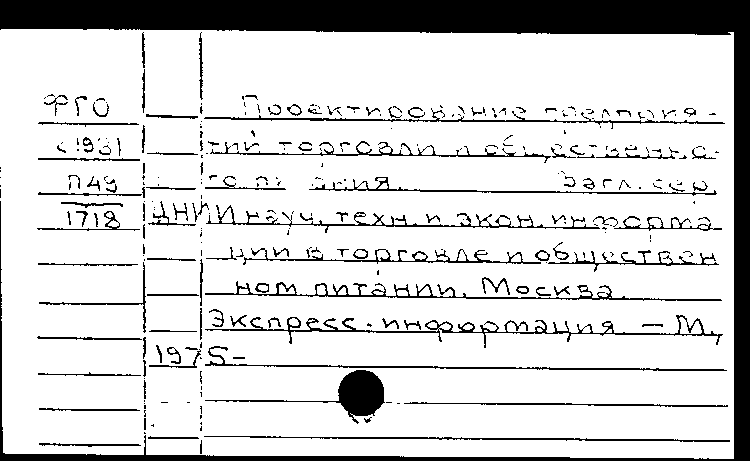 ФГО
Проектирование предприя-
1931
тий торговли и общественно-
П49
го питания. Загл. сер.
1718
ЦНИИ науч., техн. и экон. информа
ции в торговле и обществен
ном питании. Москва.
Экспресс-информация. — М.,
1975-